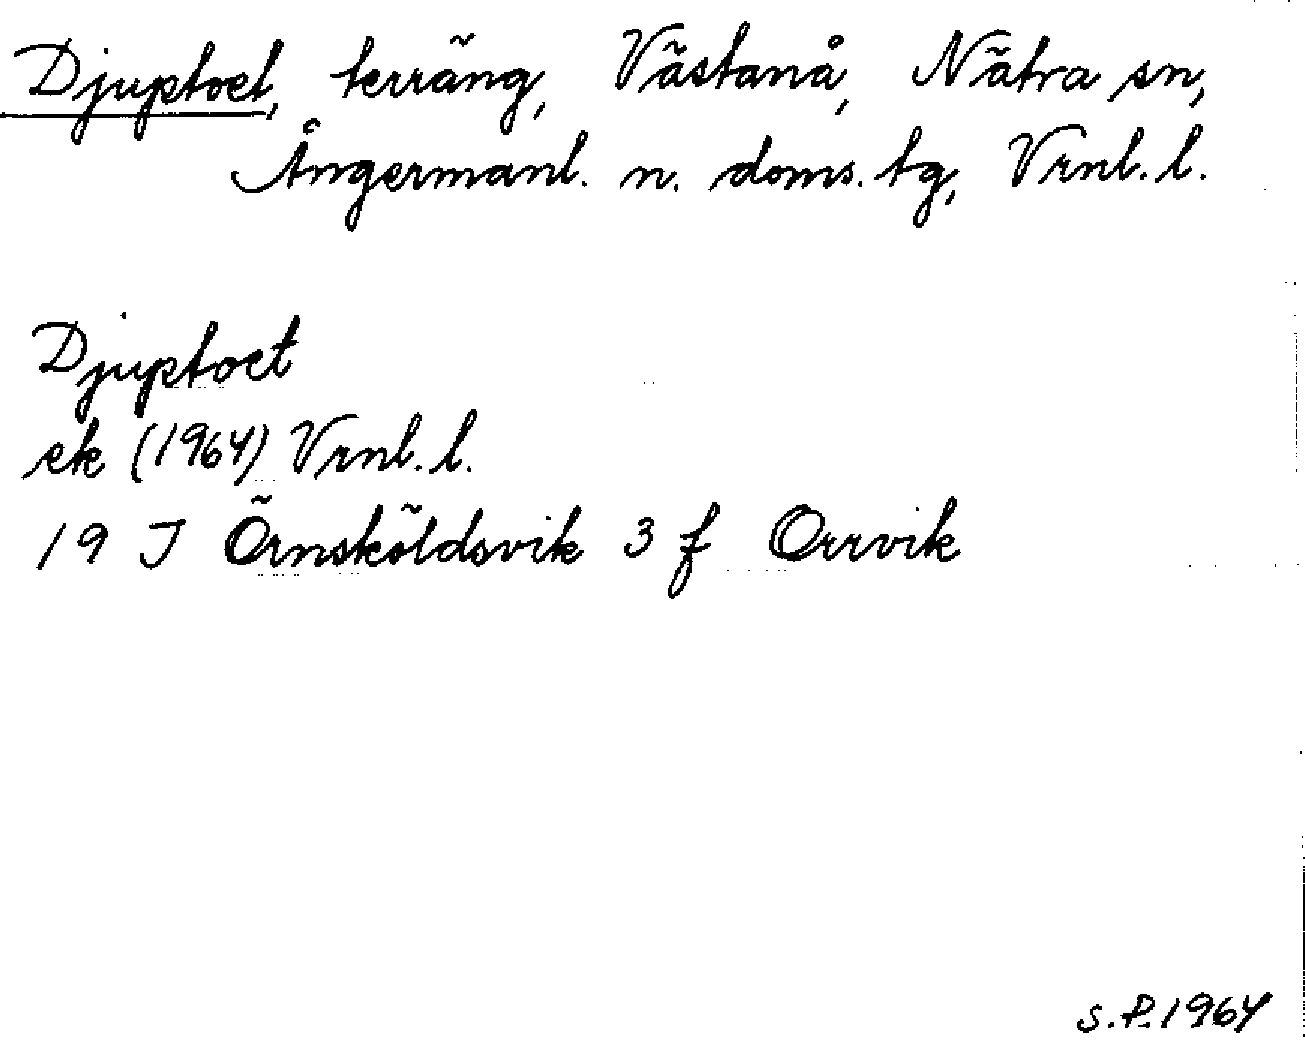 Djuptoet, terräng, Västanå, Nätra sn,
Ångermanl. n. doms. tg, Vrnl. l.
Djuptoet
ek (1964) Vrnl. l.
19 J Örnsköldsvik 3 f Orrvik
S. P. 1964